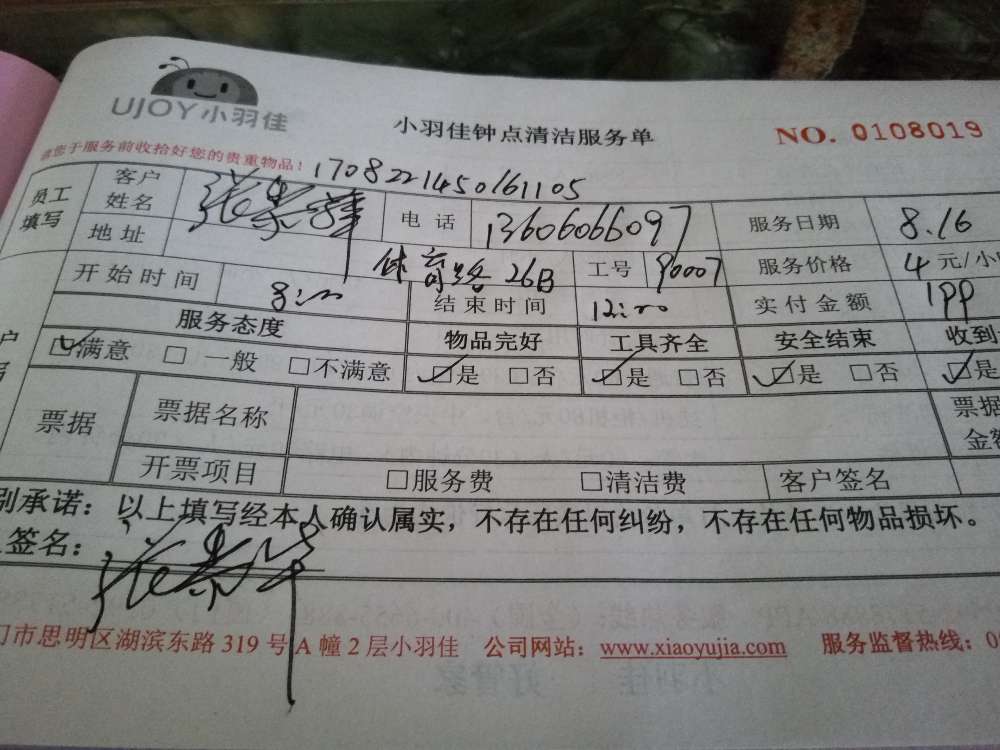 UJOY小羽佳
小羽佳钟点清洁服务单 NO. 0108019
请您于服务前收拾好您的贵重物品！1708221450161105
员工填写 客户姓名 电话 13606066097 服务日期 8.16
地址 体育路26B 工号 90007 服务价格 4 元/小
开始时间 8:00 结束时间 12:00 实付金额
服务态度 物品完好 工具齐全 安全结束 收到
☑满意 □一般 □不满意 ☑是 □否 ☑是 □否 ☑是 □否 ☑是
票据 票据名称 票据金
开票项目 □服务费 □清洁费 客户签名
别承诺：以上填写经本人确认属实，不存在任何纠纷，不存在任何物品损坏。
签名：
门市思明区湖滨东路 319 号 A 幢 2 层小羽佳 公司网站：www.xiaoyujia.com 服务监督热线：0